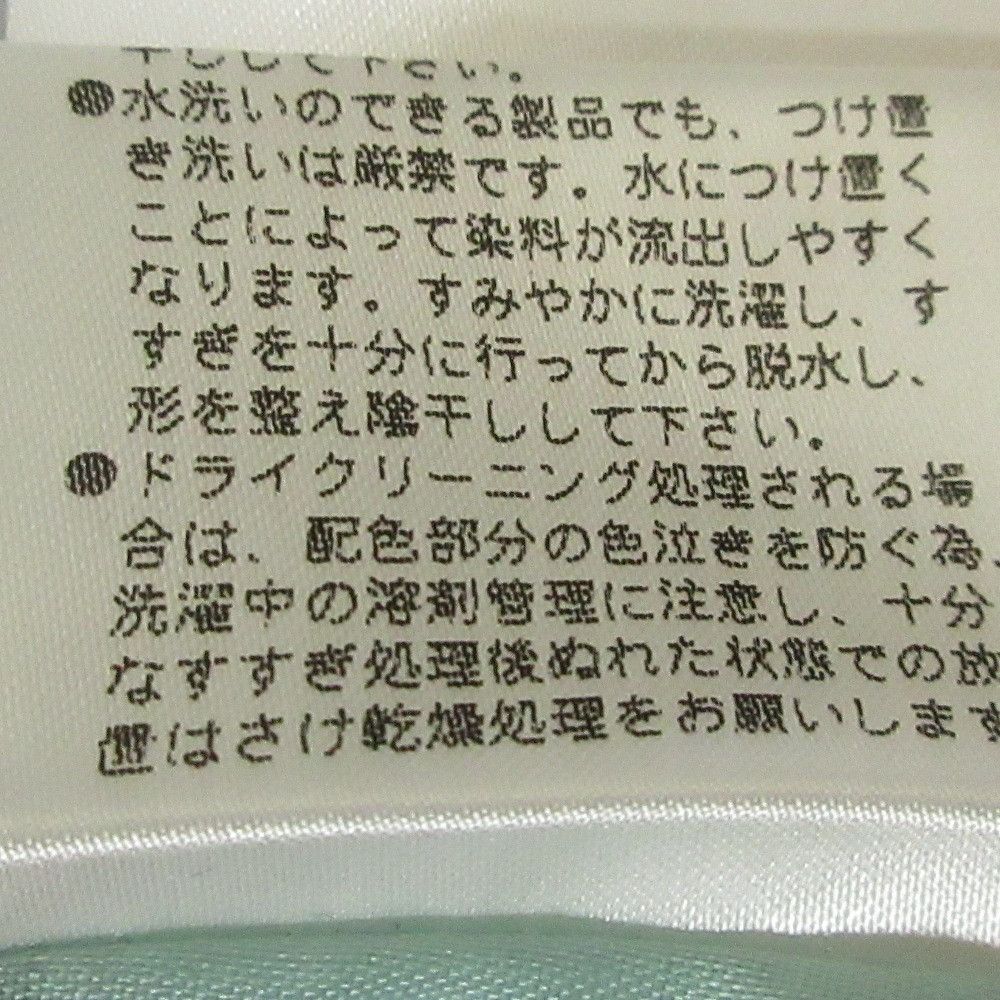 干しして下さい。
●水洗いのできる製品でも、つけ置
き洗いは厳禁です。水につけ置く
ことによって染料が流出しやすく
なります。すみやかに洗濯し、す
すぎを十分に行ってから脱水し、
形を整え陰干しして下さい。
●ドライクリーニング処理される場
合は、配色部分の色泣きを防ぐ為、
洗濯中の溶剤管理に注意し、十分
なすすぎ処理後ぬれた状態での放
置はさけ乾燥処理をお願いします